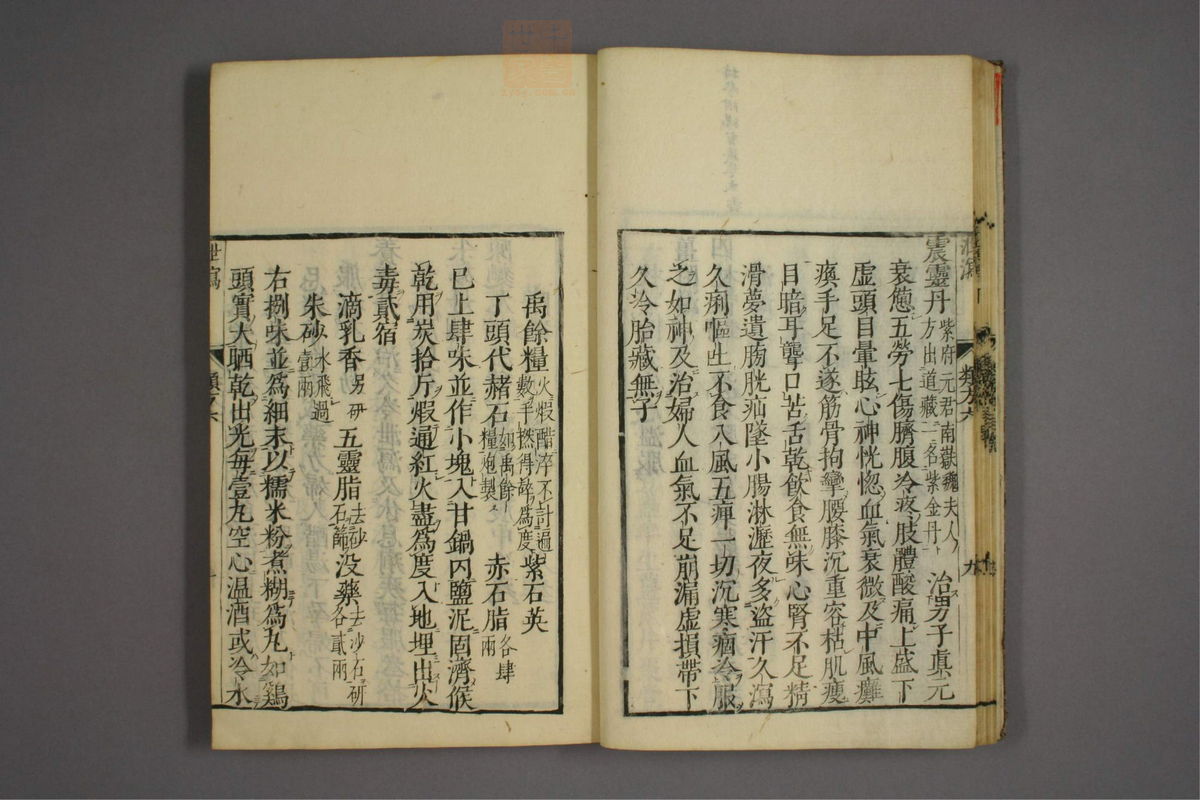 震靈丹 紫府元君南嶽魏夫人方出道藏一名紫金丹 治男子眞元
衰憊五勞七傷臍腹冷疼肢體酸痛上盛下
虛頭目暈眩心神恍惚血氣衰微及中風癱
瘓手足不遂筋骨拘攣腰膝沉重容枯肌瘦
目暗耳聾口苦舌乾飲食無味心腎不足精
滑夢遺膀胱疝墜小腸淋瀝夜多盜汗久瀉
久痢嘔吐不食八風五痺一切沉寒痼冷服
之如神及治婦人血氣不足崩漏虛損帶下
久冷胎藏無子
禹餘糧 火煅醋淬不計遍數手撚得碎爲度 紫石英
丁頭代赭石 如禹餘糧炮製 赤石脂 各肆兩
已上肆味並作小塊入甘鍋内鹽泥固濟候
乾用炭拾斤煅通紅火盡爲度入地埋出火
毒貳宿
滴乳香 另研 五靈脂 去砂石篩 没藥 去沙石研各貳兩
朱砂 水飛過壹兩
右捌味並爲細末以糯米粉煮糊爲丸如鷄
頭實大晒乾出光每壹丸空心溫酒或冷水